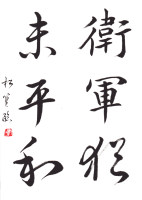 衛軍猶
未平和